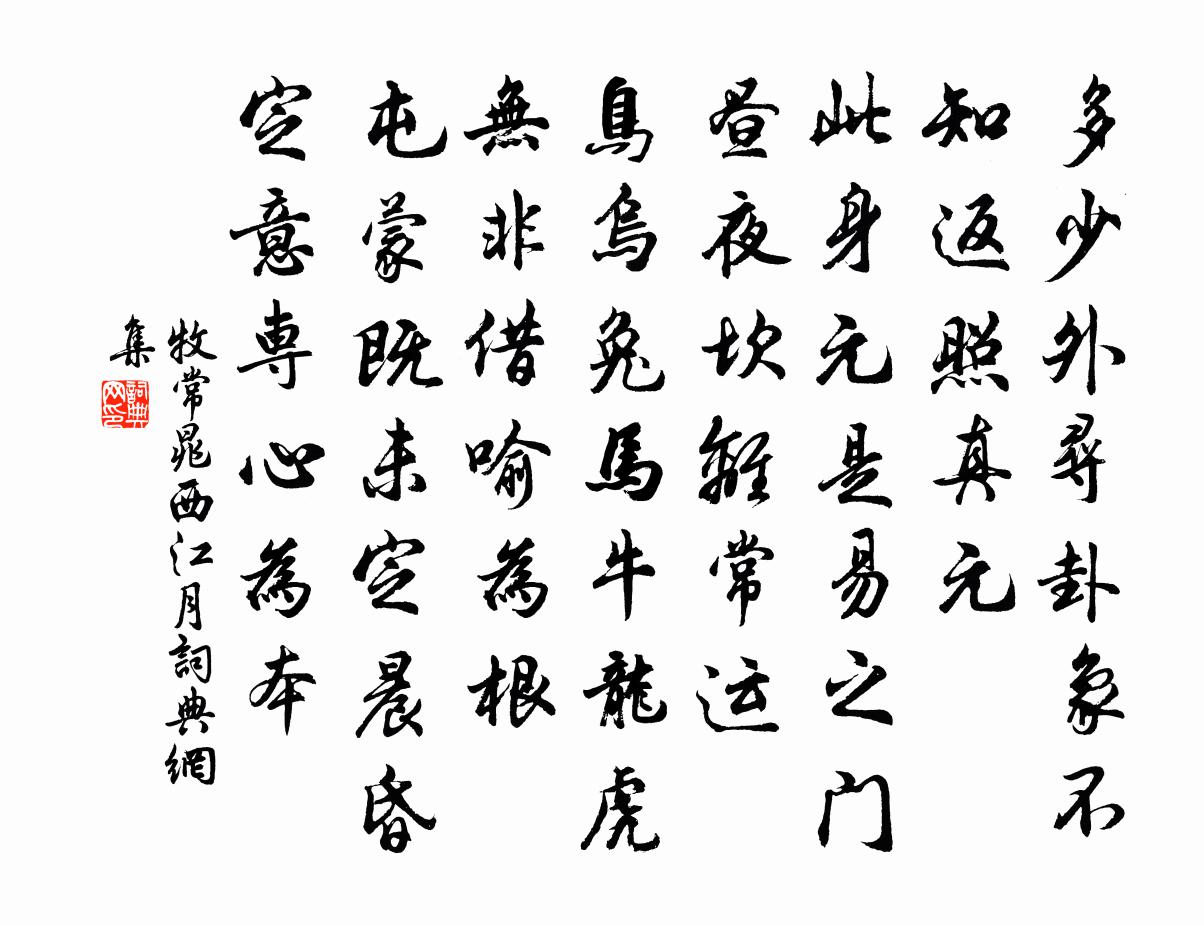 多少外尋卦象不
知返照真元
此身元是易之门
昼夜坎離常运
鳥烏兔馬牛龍虎
無非借喻為根
屯蒙既未定晨昏
定意専心為本
牧常晁西江月詞典網
集
詞典
网印